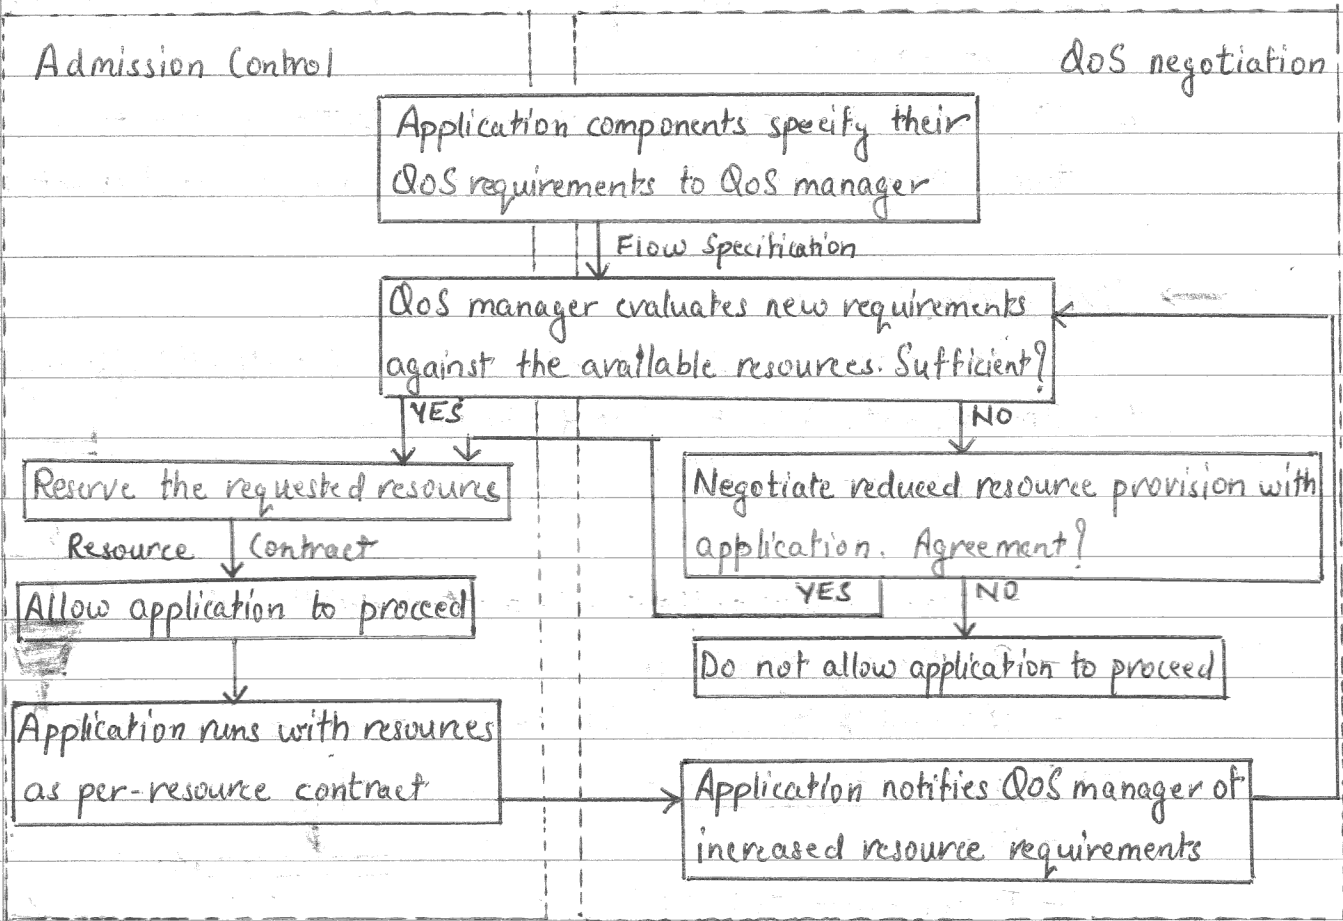 Admission Control
QoS negotiation
Application components specify their
QoS requirements to QoS manager
Flow Specification
QoS manager evaluates new requirements
against the available resources. Sufficient?
YES
NO
Reserve the requested resoures
Negotiate reduced resource provision with
application. Agreement?
Resource Contract
YES
NO
Allow application to proceed
Do not allow application to proceed
Application runs with resources
as per-resource contract
Application notifies QoS manager of
increased resource requirements